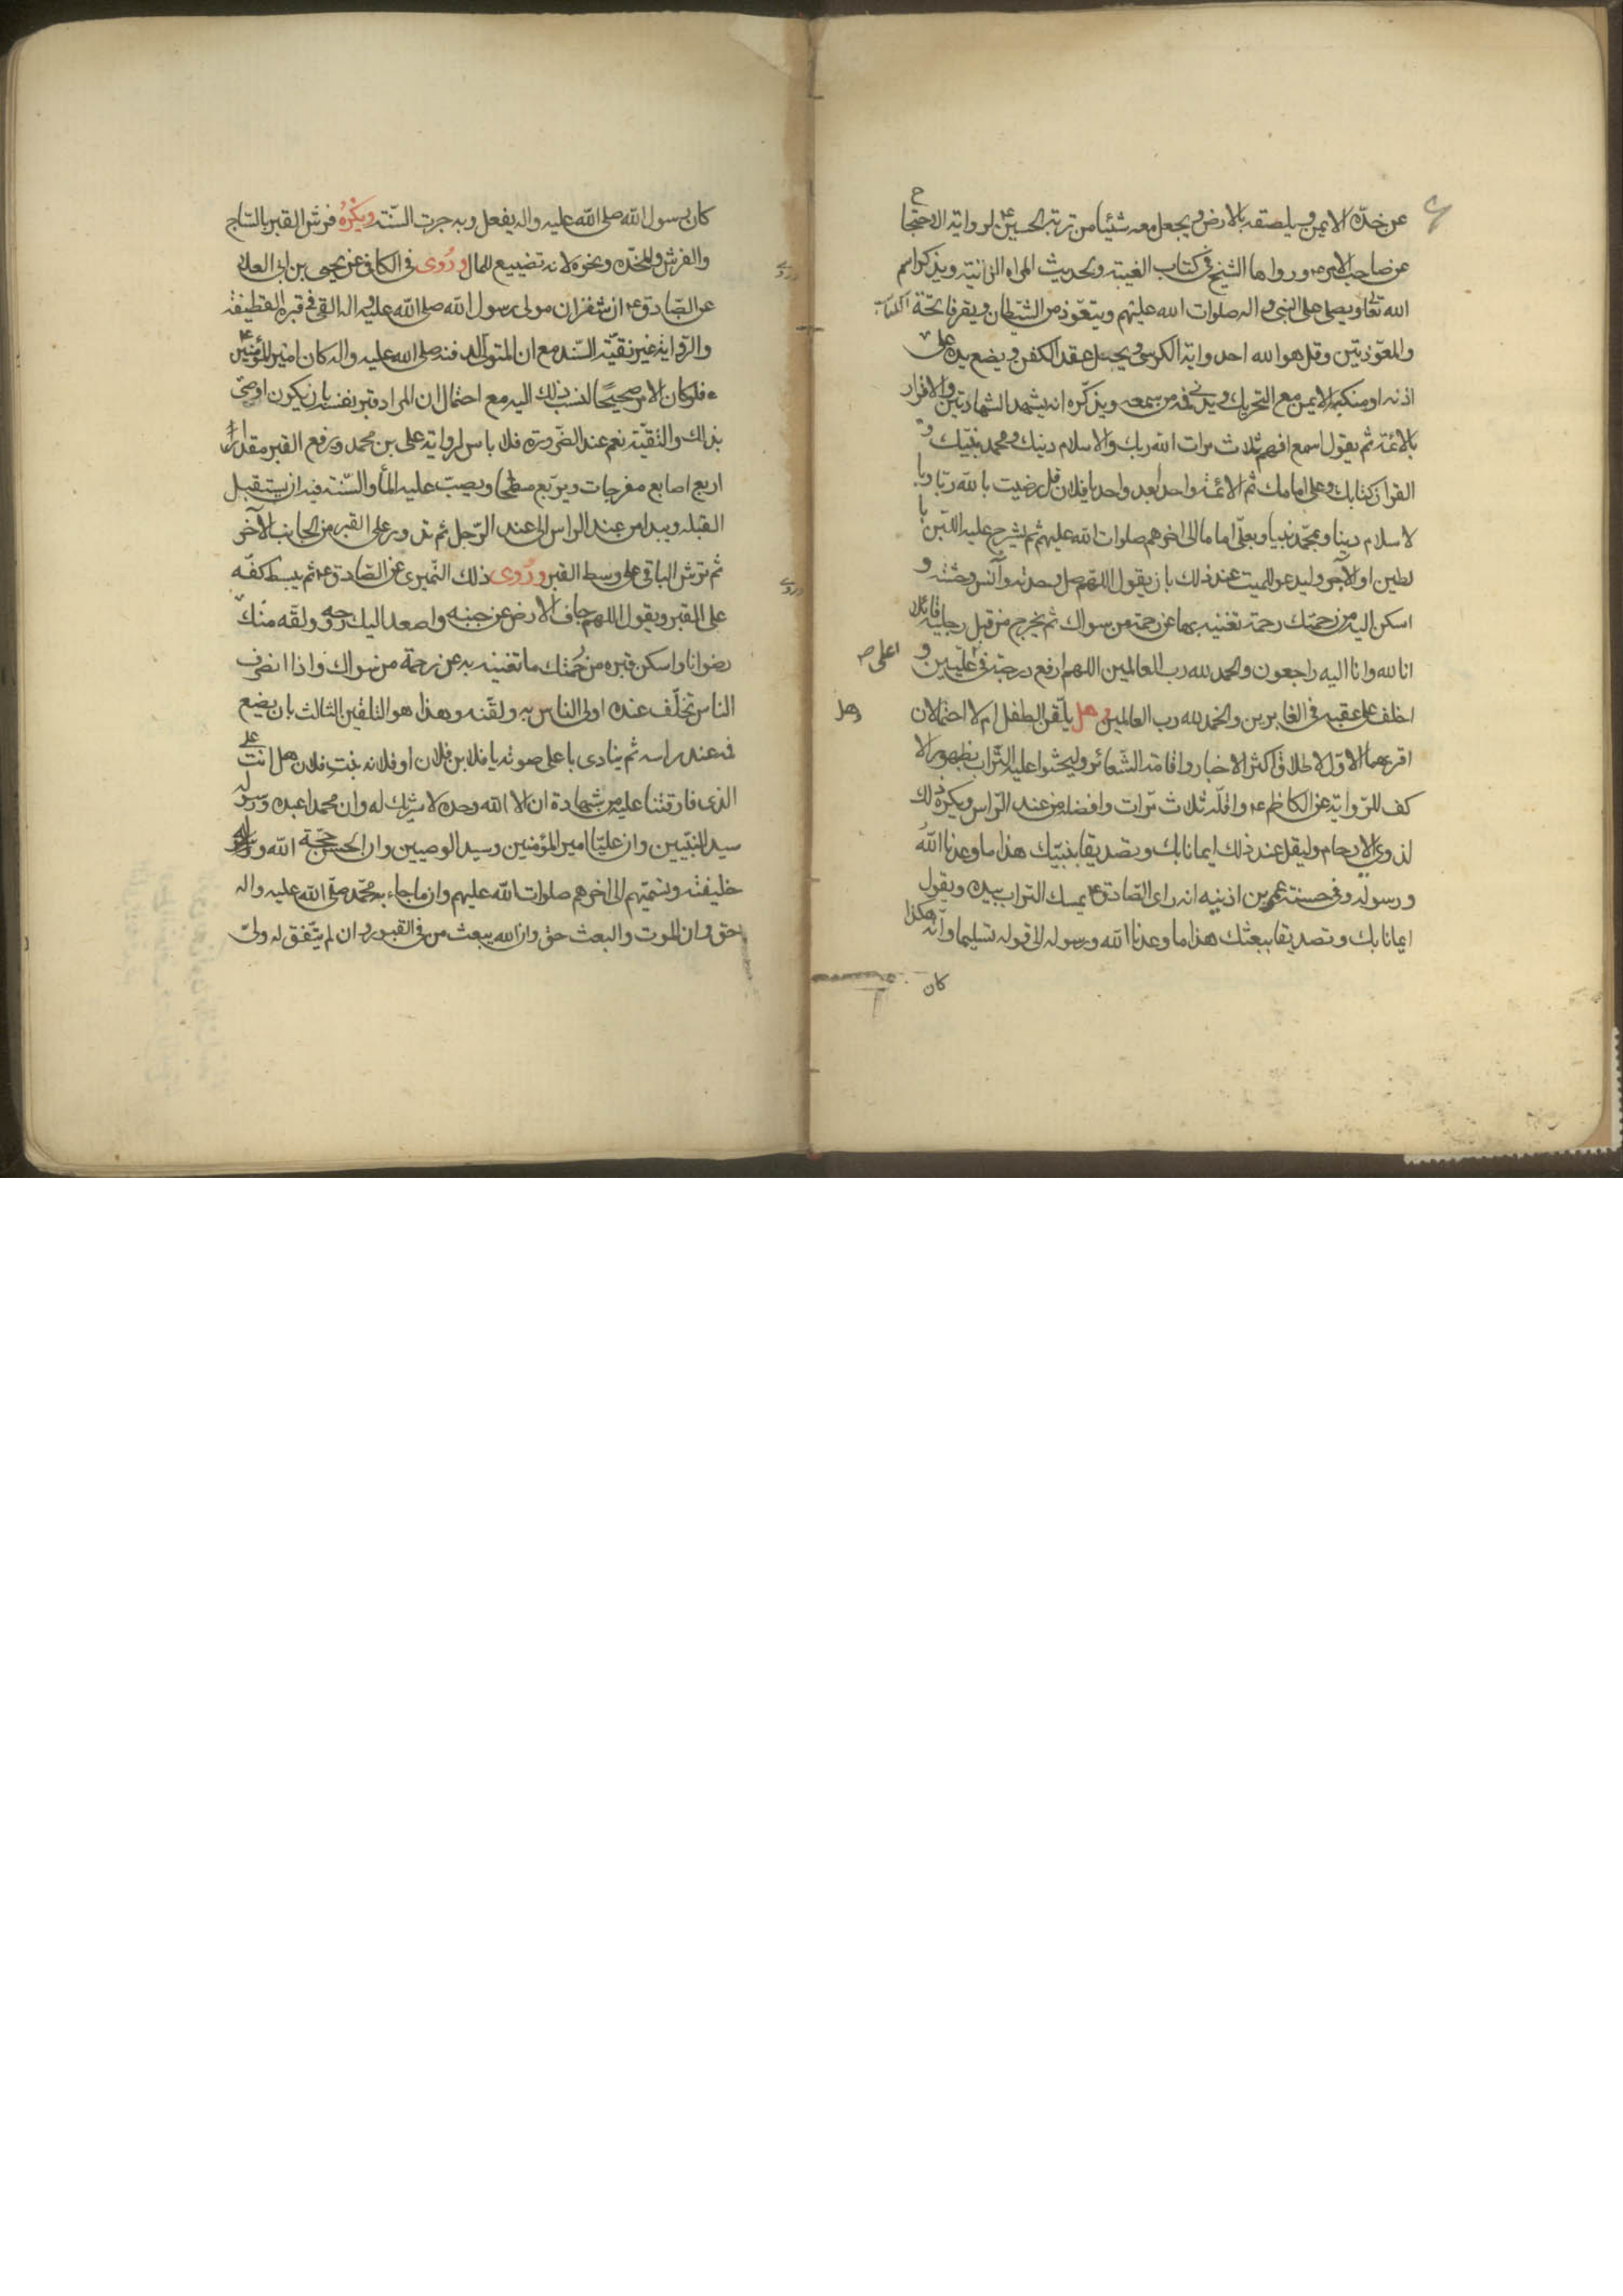 عن خده الايمن ويلصقه بالارض ويجعل معه شيئا من تربة الحسين ع لرواية الاحتجاج
عن صاحب الامر ع ورواها الشيخ في كتاب الغيبة ولحديث المراه الزانية ويذكر اسم
الله تعالى ويصلي على النبي واله صلوات الله عليهم ويتعوذ من الشيطان ويقرء فاتحة الكتاب
والمعوذتين وقل هو الله احد واية الكرسي ويحل عقد الكفن ويضع يده على
اذنه او منكبه الايمن مع التحريك ويدني فمه من سمعه ويذكره انه يشهد الشهادتين والاقرار
بالائمة ثم يقول اسمع افهم ثلاث مرات الله ربك والاسلام دينك ومحمد نبيك و
القران كتابك وعلى امامك ثم الائمة واحدا بعد واحد يا فلان قل رضيت بالله ربا وبا
لاسلام دينا وبمحمد نبيا وبعلي اماما الى اخرهم صلوات الله عليهم ثم يشرج عليه اللبن با
لطين او الآجر وليدعو للميت عند ذلك بان يقول اللهم صل وحدته وآنس وحشته و
اسكن اليه من رحمتك رحمة تغنيه بها عن رحمة من سواك ثم يخرج من قبل رجليه قائلا
انا لله وانا اليه راجعون والحمد لله رب العالمين اللهم ارفع درجته في عليين و
اعلى صح
اخلف على عقبه في الغابرين والحمد لله رب العالمين وهل يلقن الطفل ام لا احتمالان
وهل
اقربهما الاول لاطلاق اكثر الاخبار واقامة الشعائر وليحثوا عليه التراب بظهور الا
كف للرواية عن الكاظم ع واقله ثلاث مرات وافضله من عند الراس ويكره ذلك
لذوي الارحام وليقل عند ذلك ايمانا بك وتصديقا بنبيك هذا ما وعدنا الله
ورسوله وفي حسنة عمر بن اذينه انه راى الصادق ع يمسك التراب بيده ويقول
ايمانا بك وتصديقا ببعثك هذا ما وعدنا الله ورسوله الى قوله تسليما وانه هكذا
كان
كان رسول الله صلى الله عليه واله يفعل وبه جرت السنة ويكره فرش القبر بالساج
والفرش والمخدة ونحوه لانه تضييع للمال وروى في الكافي عن يحيى بن ابى العلا
عن الصادق ع ان شقران مولى رسول الله صلى الله عليه واله القى في قبره القطيفة
والرواية غير نقية السند مع ان المتولى لدفنه صلى الله عليه واله كان امير المؤمنين
ع فلو كان الامر صحيحا لنسب ذلك اليه مع احتمال ان المراد قبر نفسه بان يكون اوصى
بذلك والتقية نعم عند الضرورة فلا باس لرواية على بن محمد ويرفع القبر مقدار
اربع اصابع مفرجات ويربع مسطحا ويصب عليه الماء والسنة فيه ان يستقبل
القبله ويبدا من عند الراس الى عند الرجل ثم تدور على القبر من الجانب الآخر
ثم ترش الباقي على وسط القبر وروى ذلك النميرى عن الصادق ع ثم يبسط كفه
على القبر ويقول اللهم جاف الارض عن جنبه واصعد اليك روحه ولقه منك
رضوانا واسكن قبره من رحمتك ما تغنيه به عن رحمة من سواك واذا انصرف
الناس تخلف عنده اولى الناس به ولقنه وهذا هو التلقين الثالث بان يضع
فمه عند راسه ثم ينادى باعلى صوته يا فلا بن فلان او فلانه بنت فلان هل انت على
الذى فارقتنا عليه من شهادة ان لا اله الا الله وحده لا شريك له وان محمدا عبده ورسوله
سيد النبيين وان عليا امير المؤمنين وسيد الوصيين وان الحسن حجة الله و
خليفته وتسميهم الى اخرهم صلوات الله عليهم وان ما جاء به محمد صلى الله عليه واله
حق وان الموت والبعث حق وان الله يبعث من فى القبور وان لم يتفق له ولى